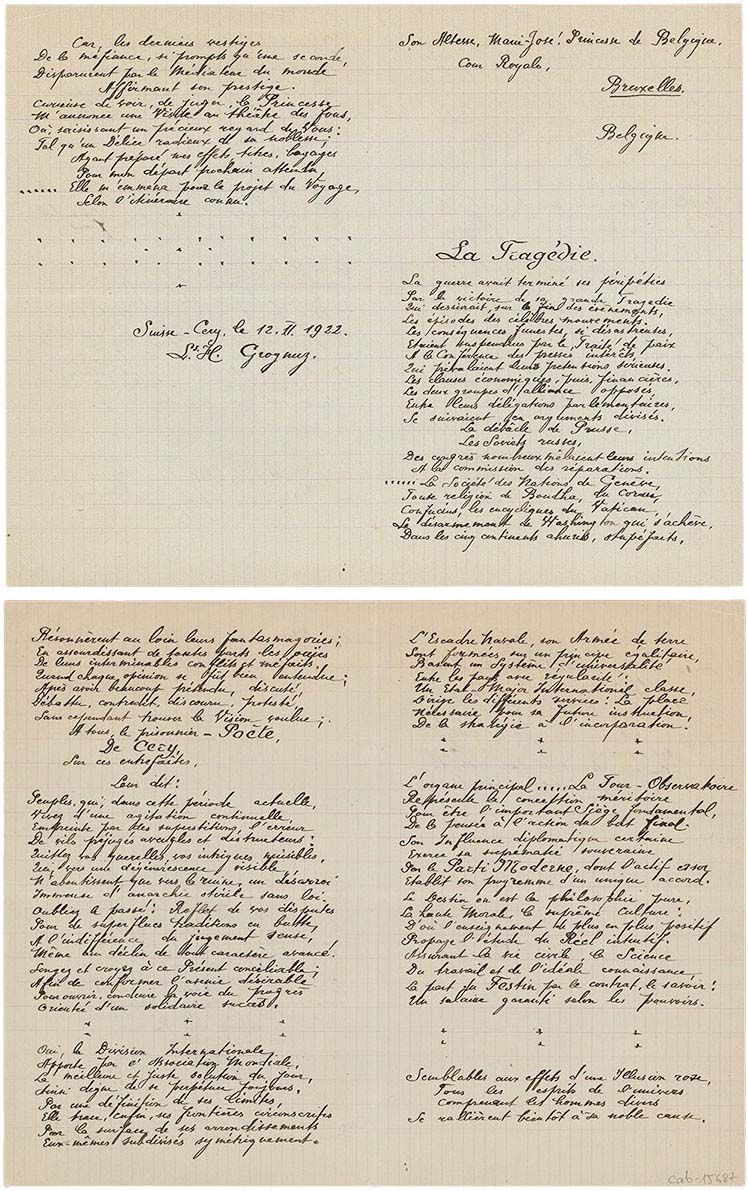 Car, les derniers vestiges
De la méfiance, si prompts qu'une seconde,
Disparurent par le Médiateur du monde
Affirmant son prestige.
Curieuse de voir, de juger, la Princesse
M'annonce une Visite au théâtre des fous,
Où, saisissant un précieux regard de Vous:
Tel qu'un Délice radieux de sa noblesse;
Ayant préparé mes effets, titres, bagages
Pour mon départ prochain attendu,
...... Elle m'emmena pour le projet du Voyage,
Selon l'itinéraire connu.
Suisse-Cery, le 12. II. 1922.
Ls. H. Grognuz.
Son Altesse, Marie-José, Princesse de Belgique,
Cour Royale,
Bruxelles,
Belgique.
La Tragédie.
La guerre avait terminé ses péripéties
Par la victoire de sa grande Tragédie
Qui desserait, sur la fin des évènements,
Les épisodes des célèbres mouvements.
Les conséquences funestes, si désastreuses,
Etaient suspendues par le Traité de paix
A la Conférence des presses intérêts,
Qui prévalaient leurs prétentions sérieuses.
Les clauses économiques, puis, financières,
Les deux groupes d'alliance opposés,
Entre leurs délégations parlementaires,
Se suivaient en arguments divisés.
La débâcle de Prusse,
Les Soviets russes,
Des congrès nombreux mêlaient leurs intentions
A la commission des réparations.
...... La Société des Nations de Genève,
Toute religion de Boudha, du coran,
Confucius, les encycliques du Vatican,
Le désarmement de Washington qui s'achève,
Dans les cinq continents ahuris, stupéfaits,
Résonnèrent au loin leurs fantasmagories;
En assourdissant de toutes parts les ouïes
De leurs interminables conflits et méfaits.
Quand chaque opinion se fût bien entendue;
Après avoir beaucoup prétendu, discuté,
Débattu, contredit, discouru, protesté,
Sans cependant trouver la Vision voulue;
A tous, le prisonnier-Poète,
De Cery,
Sur ces entrefaites,
Leur dit:
Peuples, qui, dans cette période actuelle,
Vivez d'une agitation continuelle,
Empreinte par des superstitions, l'erreur
De vils préjugés aveugles et destructeurs:
Quittez vos querelles, vos intrigues nuisibles,
Qui, vers une dégénérescence visible
N'aboutissent que vers la ruine, un désarroi
Immense d'anarchie stérile sans loi.
Oubliez le passé! Reflet de vos disputes
Pour de superflues traditions en butte,
A l'indifférence du jugement sensé,
Même au déclin de tout caractère avancé.
Songez et croyez à ce Présent conciliable;
Afin de conformer l'avenir désirable
Pour ouvrir, conduire la voie du progrès
Orientée d'un solidaire succès.
Oui, la Division Internationale,
Apporte par l'Association Mondiale,
La meilleure et juste solution du jour,
Ainsi digne de se perpétuer toujours.
Par une définition de ses limites,
Elle trace, enfin, ses frontières circonscrites
Par la surface de ses arrondissements
Eux-mêmes subdivisés symétriquement.
L'Escadre Navale, son Armée de terre
Sont formées, sur un principe égalitaire,
Basant un Système d'universalité
Entre les pays avec régularité!
Un Etat-Major International classe,
Dirige les différents services: La place
Nécessaire pour sa future instruction,
De la stratégie à l'incorporation.
L'organe principal ..... La Tour-Observatoire
Représente la conception méritoire
Pour être l'important Siège fondamental,
De la pensée à l'action du but final.
Son Influence diplomatique certaine
Exerce sa suprématie souveraine
Par le Parti Moderne, dont l'actif essor
Etablit son programme d'un unique accord.
Le Destin en est la philosophie pure,
La haute Morale, la suprême culture:
D'où l'enseignement de plus en plus positif
Propage l'étude du Réel intuitif.
Assurant la vie civile, la Science
Du travail et de l'idéale connaissance,
La part du Festin par le contrat, le savoir!
Un salaire garanti selon les pouvoirs.
Semblables aux effets d'une Illusion rose,
Tous les esprits de l'univers
Comprenant les hommes divers
Se rallièrent bientôt à sa noble cause.
cab-15687